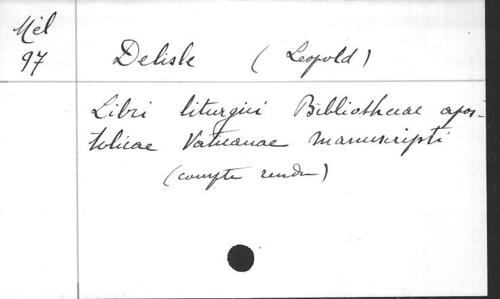 Mél
97
Delisle (Leopold)
Libri liturgici Bibliothecae apos-
tolicae Vaticanae manuscripti
(compte rendu)